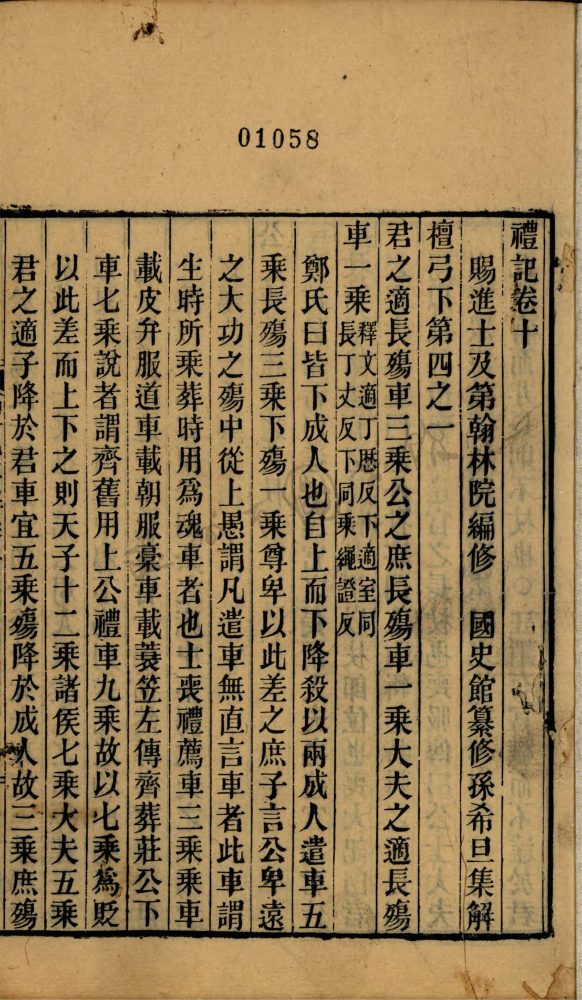 01058
禮記卷十
賜進士及第翰林院編修　國史館纂修孫希旦集解
檀弓下第四之一
君之適長殤車三乘公之庶長殤車一乘大夫之適長殤
車一乘釋文適丁歷反下適室同
長丁丈反下同乘繩證反
鄭氏曰皆下成人也自上而下降殺以兩成人遣車五
乘長殤三乘下殤一乘尊卑以此差之庶子言公卑遠
之大功之殤中從上愚謂凡遣車無直言車者此車謂
生時所乘葬時用爲魂車者也士喪禮薦車三乘乘車
載皮弁服道車載朝服槀車載蓑笠左傳齊葬莊公下
車七乘說者謂齊舊用上公禮車九乘故以七乘爲貶
以此差而上下之則天子十二乘諸侯七乘大夫五乘
君之適子降於君車宜五乘殤降於成人故三乘庶殤